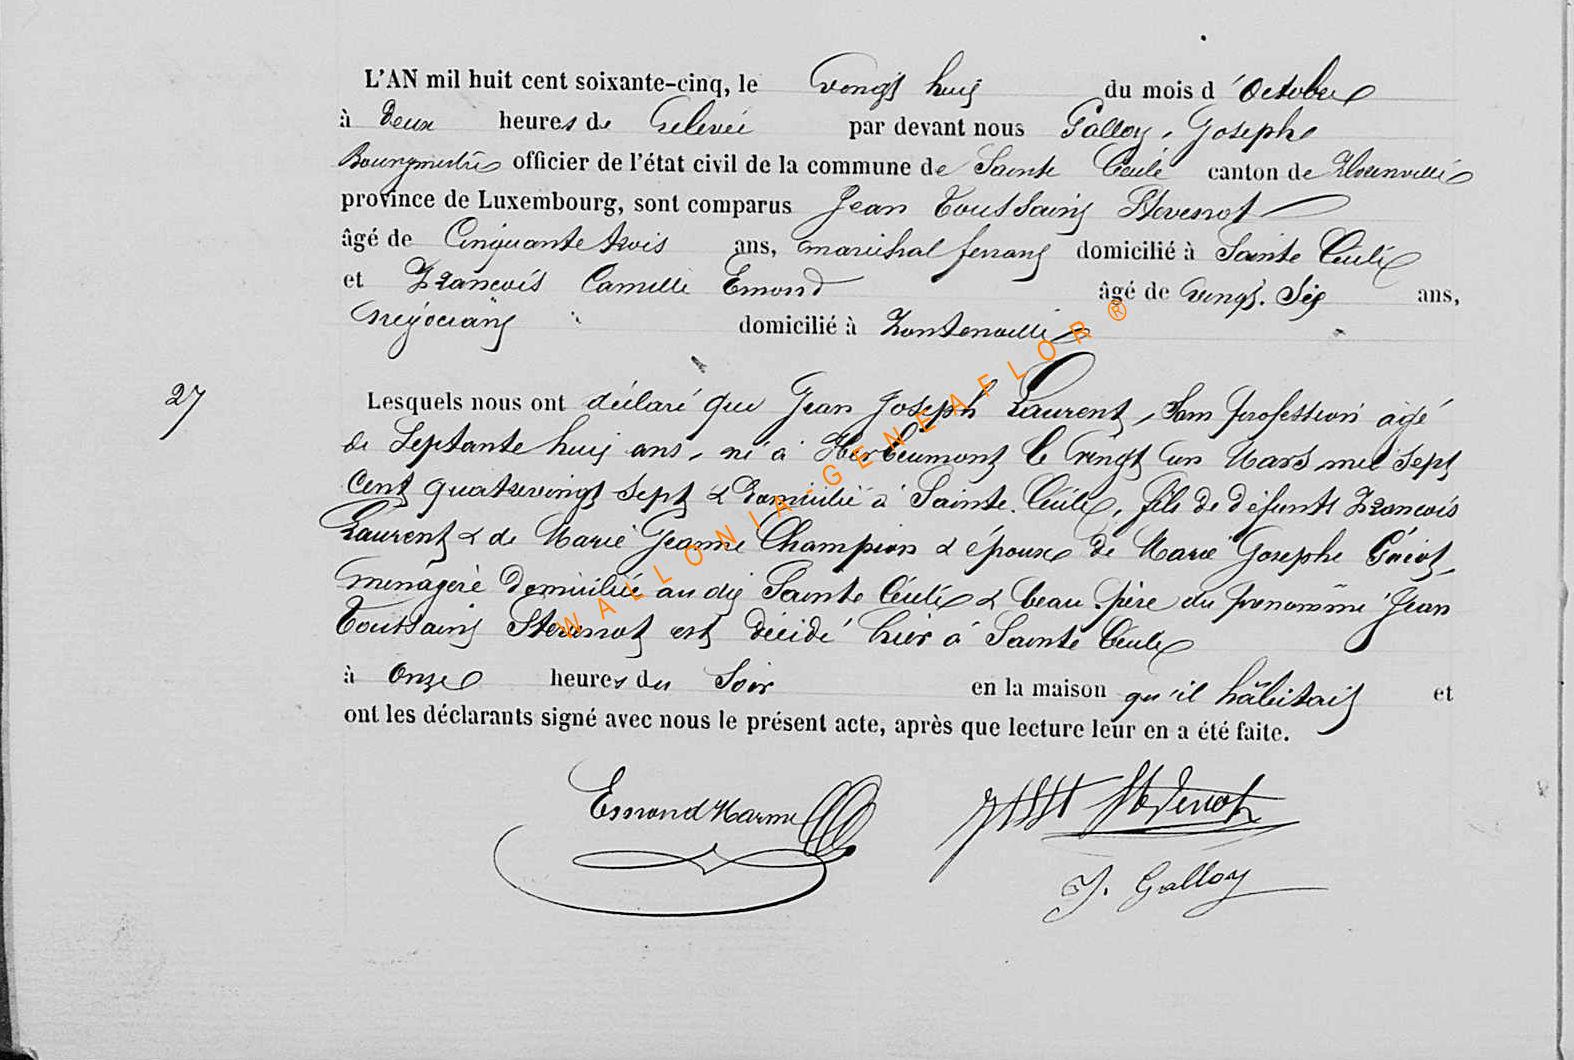 L'AN mil huit cent soixante-cinq, le vingt huit du mois d'Octobre
à Deux heures de relevée par devant nous Galloy, Joseph
Bourgmestre officier de l'état civil de la commune de Sainte Cécile canton de Florenville
province de Luxembourg, sont comparus Jean Toussaint Stevenot
âgé de Cinquante trois ans, maréchal ferrant domicilié à Sainte Cécile
et François Camille Emond âgé de vingt-six ans,
négociant domicilié à Fontenoille
27
Lesquels nous ont déclaré que Jean Joseph Laurent, sans profession âgé
de Septante huit ans, né à Herbeumont le vingt un Mars mil sept
cent quatrevingt sept & domicilié à Sainte Cécile, fils de défunts François
Laurent & de Marie Jeanne Champion & époux de Marie Josephe
menagère domiciliée au dit Sainte Cécile & beau-père du prénommé Jean
Toussaint Stevenot est décédé hier à Sainte Cécile
à onze heures du soir en la maison qu'il habitait et
ont les déclarants signé avec nous le présent acte, après que lecture leur en a été faite.
Emond Marm JTSST Stevenot
J. Galloy
WALLONIA-GENEAFLOR®